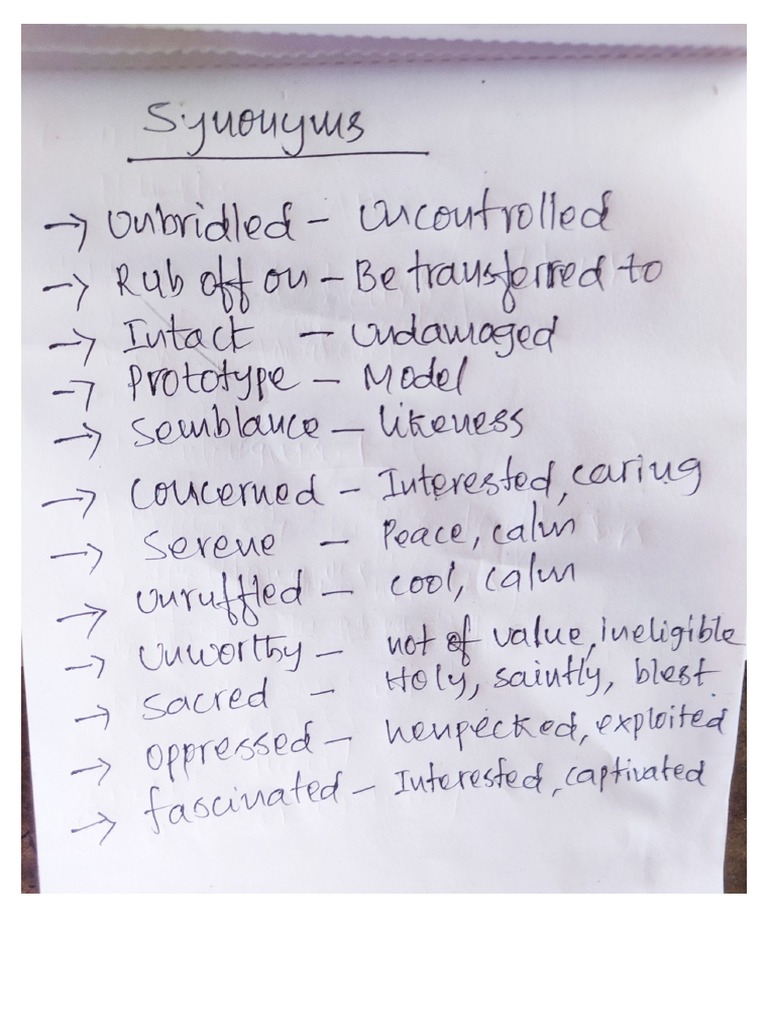 Synonyms
→ Unbridled - Uncontrolled
→ Rub off on - Be transferred to
→ Intact - Undamaged
→ Prototype - Model
→ Semblance - likeness
→ Concerned - Interested, caring
→ Serene - Peace, calm
→ Unruffled - cool, calm
→ Unworthy - not of value, ineligible
→ Sacred - Holy, saintly, blest
→ oppressed - henpecked, exploited
→ fascinated - Interested, captivated